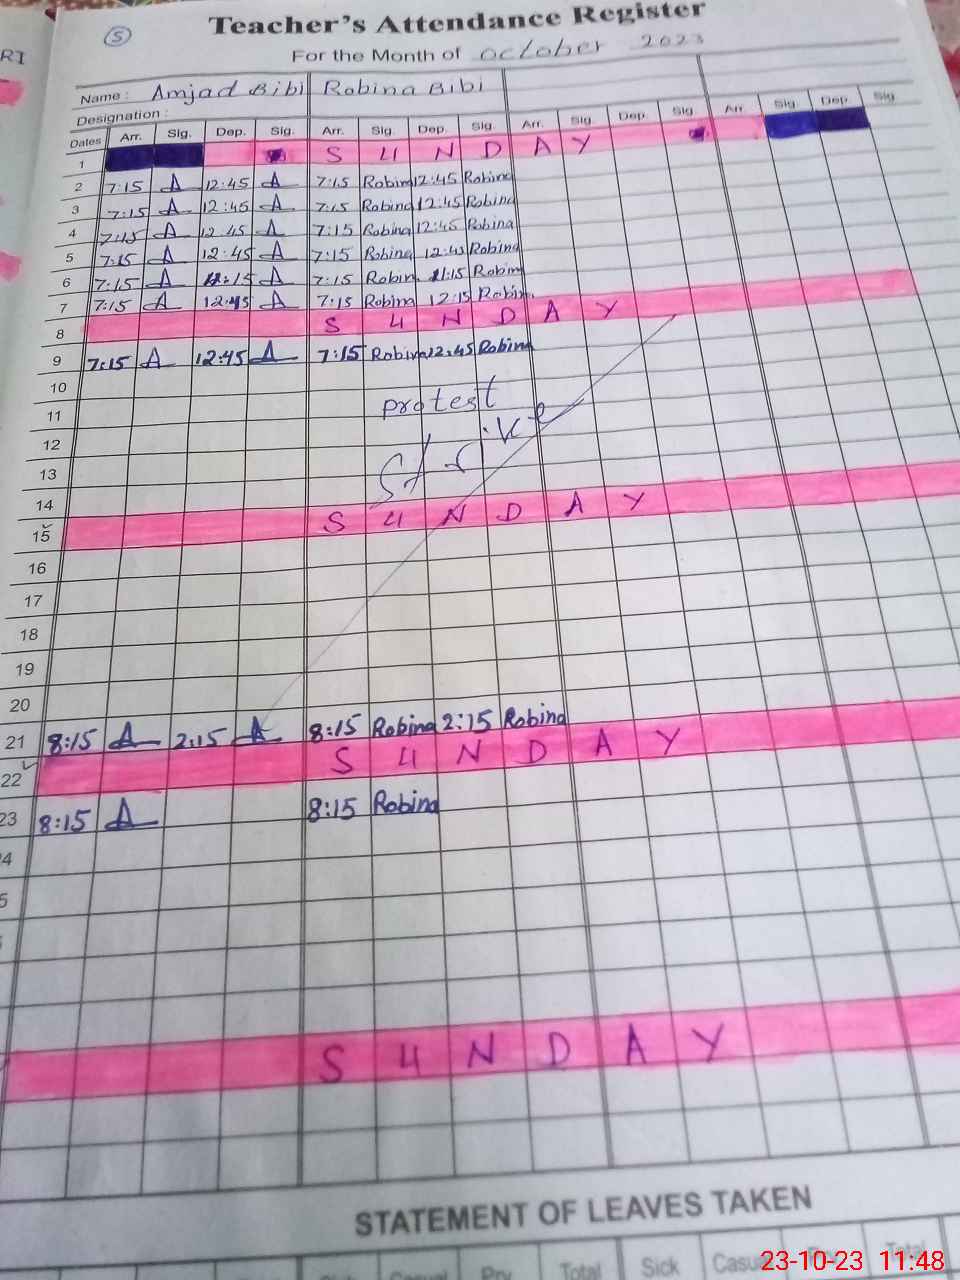 RI
5
Teacher's Attendance Register
For the Month of october 2023
Name : Amjad Bibi Robina Bibi
Designation :
Dates Arr. Sig. Dep. Sig. Arr. Sig. Dep. Sig Arr. Sig Dep. Sig Arr. Sig. Dep. Sig
1 S U N D A Y
2 7:15 A 12:45 A 7:15 Robina 12:45 Robina
3 7:15 A 12:45 A 7:15 Robina 12:45 Robina
4 7:15 A 12 45 A 7:15 Robina 12:45 Robina
5 7:15 A 12:45 A 7:15 Robina 12:45 Robina
6 7:15 A 11:15 A 7:15 Robin 11:15 Robin
7 7:15 A 12:45 A 7:15 Robina 12:15 Robin
8 S U N D A Y
9 7:15 A 12:45 A 7:15 Robina 12:45 Robina
10
11 protest
12
13 Strike
14
15 S U N D A Y
16
17
18
19
20
21 8:15 A 2:15 A 8:15 Robina 2:15 Robina
22 S U N D A Y
23 8:15 A 8:15 Robina
4
5
S U N D A Y
STATEMENT OF LEAVES TAKEN
Casual Prv Total Sick Casual Prv Total
23-10-23 11:48